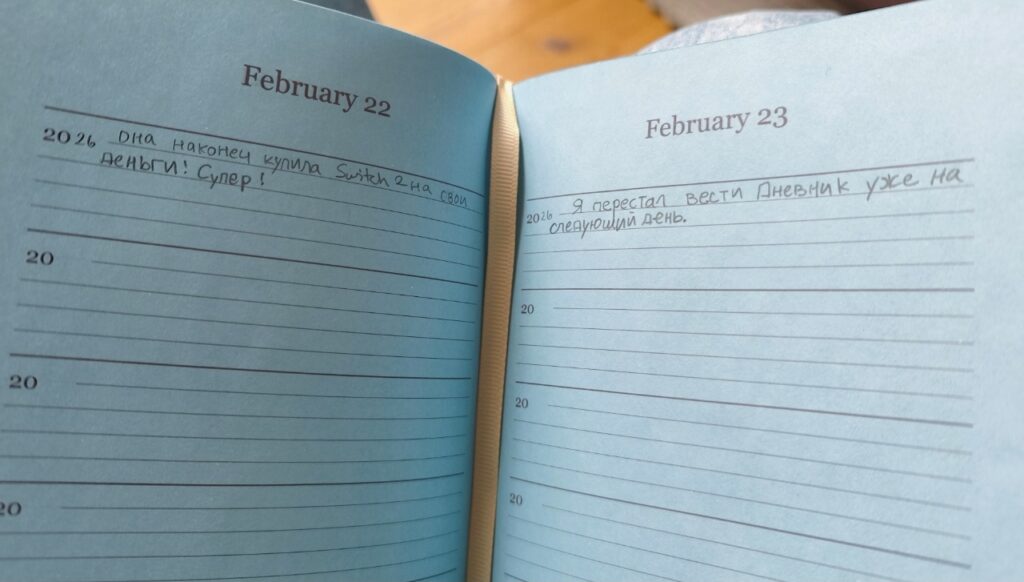 February 22
2026 Она наконец купила Switch 2 на свои
деньги! Супер!
20
20
20
February 23
2026 Я перестал вести Дневник уже на
следующий день.
20
20
20